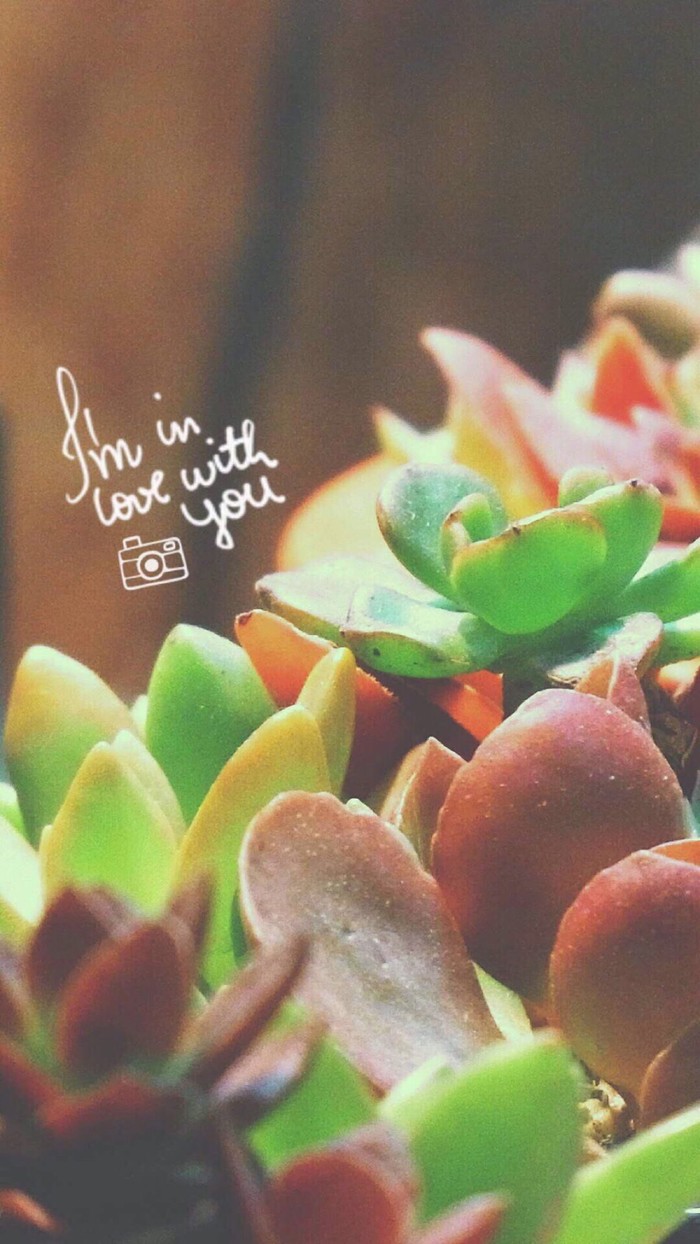 I'm in
love with
you